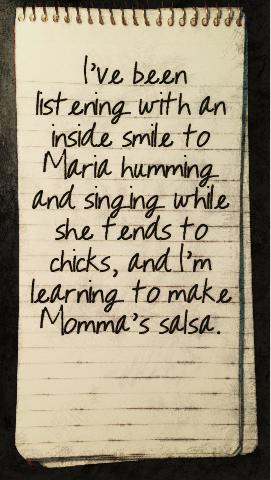 I've been
listening with an
inside smile to
Maria humming
and singing while
she tends to
chicks, and I'm
learning to make
Momma's salsa.